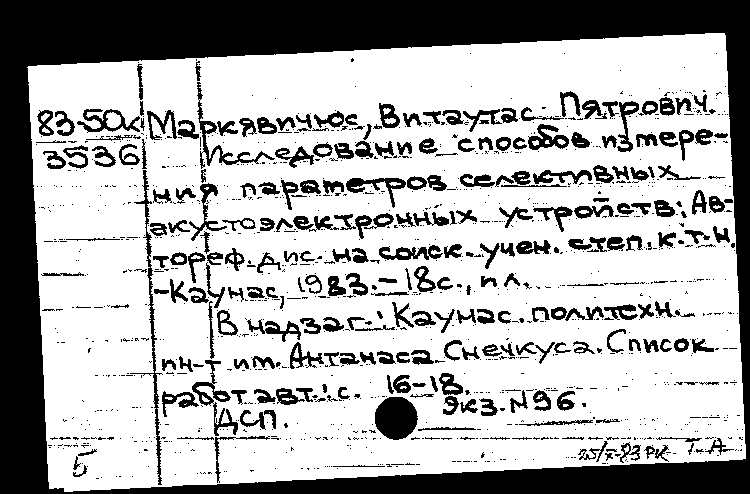 83-50к Маркявичюс, Витаутас Пятрович.
3536 Исследование способов измере-
ния параметров селективных
акустоэлектронных устройств: Ав-
тореф. дис. на соиск. учен. степ. к.т.н.
-Каунас, 1983.-18с., пл.
В надзаг.: Каунас. политехн.
ин-т им. Антанаса Снечкуса. Список
работ авт.: с. 16-18.
ДСП. Экз. №96.
5 25/X-83 РК Т. А